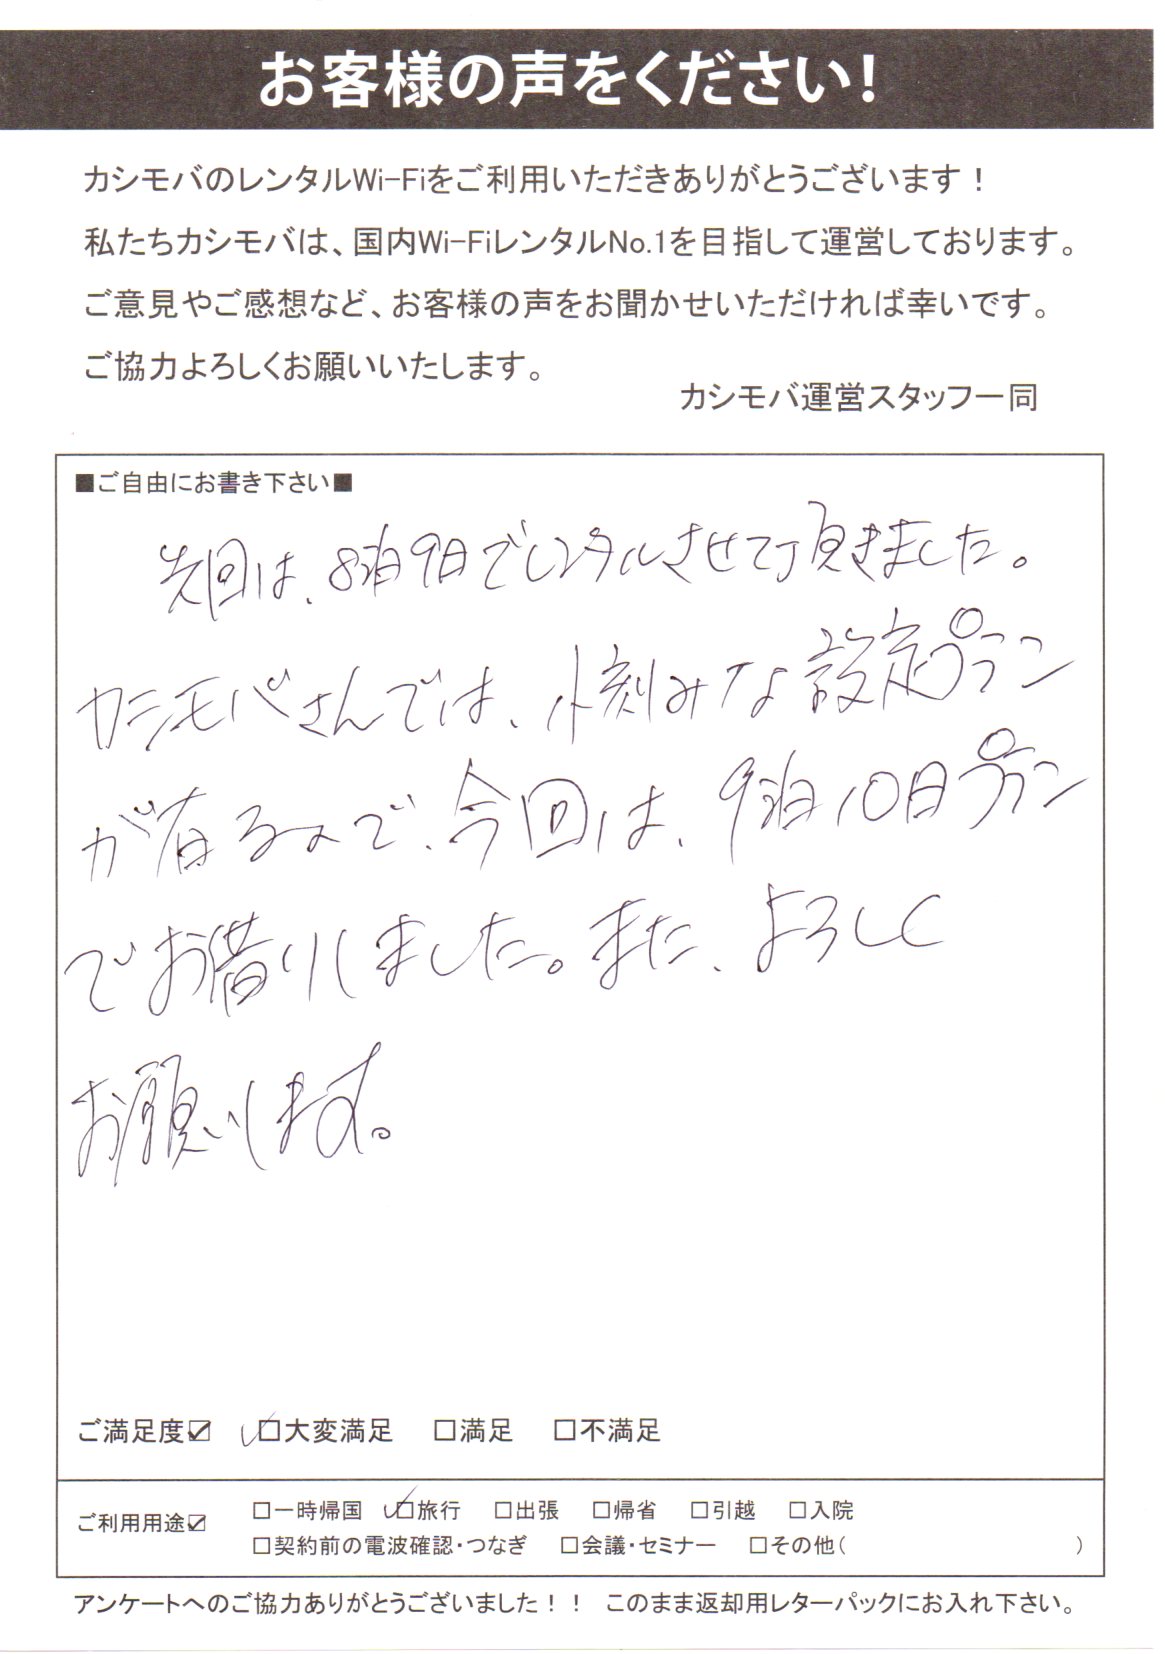 お客様の声をください！
カシモバのレンタルWi-Fiをご利用いただきありがとうございます！
私たちカシモバは、国内Wi-FiレンタルNo.1を目指して運営しております。
ご意見やご感想など、お客様の声をお聞かせいただければ幸いです。
ご協力よろしくお願いいたします。
カシモバ運営スタッフ一同
■ご自由にお書き下さい■
先回は、8泊9日でレンタルさせて頂きました。
カシモバさんでは、小刻みな設定プラン
が有るので、今回は、9泊10日プラン
でお借りしました。また、よろしく
お願いします。
ご満足度☑ ☑大変満足 □満足 □不満足
ご利用用途☑ □一時帰国 ☑旅行 □出張 □帰省 □引越 □入院
□契約前の電波確認・つなぎ □会議・セミナー □その他( )
アンケートへのご協力ありがとうございました！！ このまま返却用レターパックにお入れ下さい。